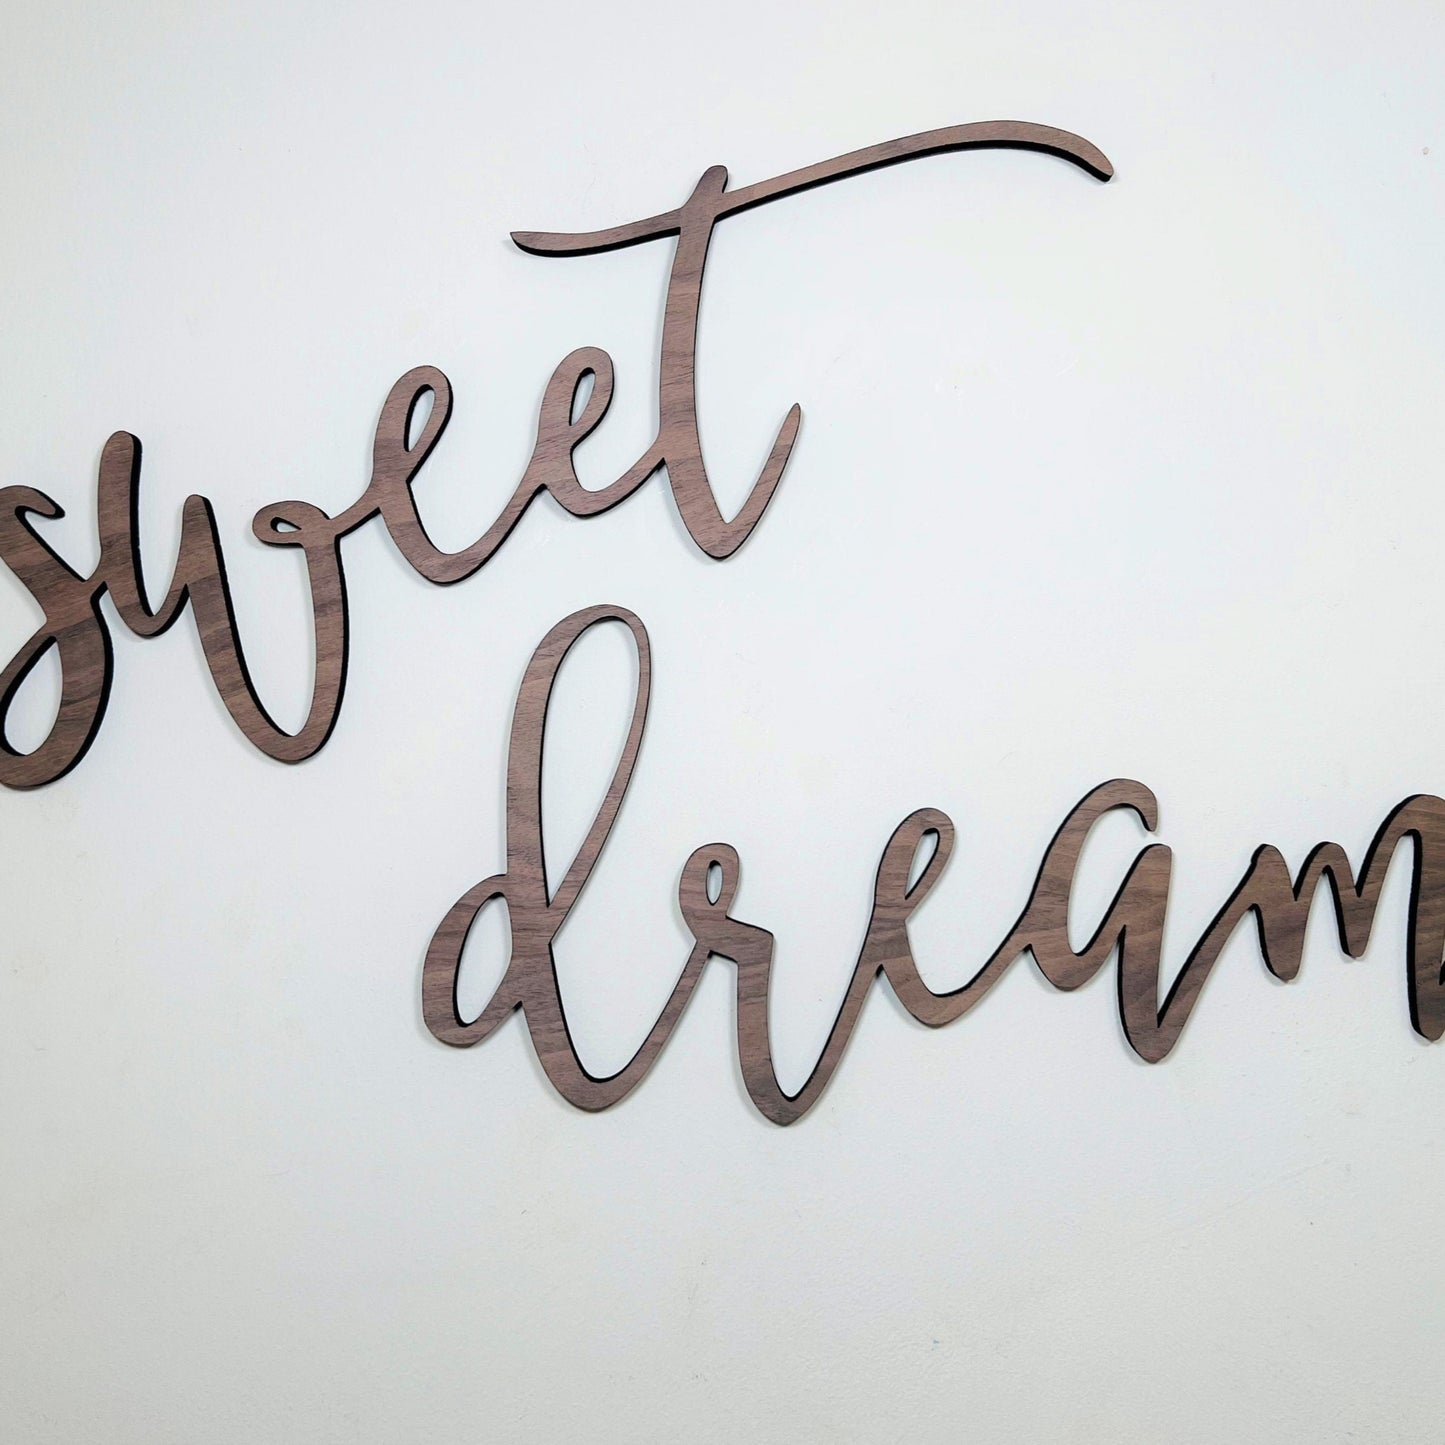 sweet
dream